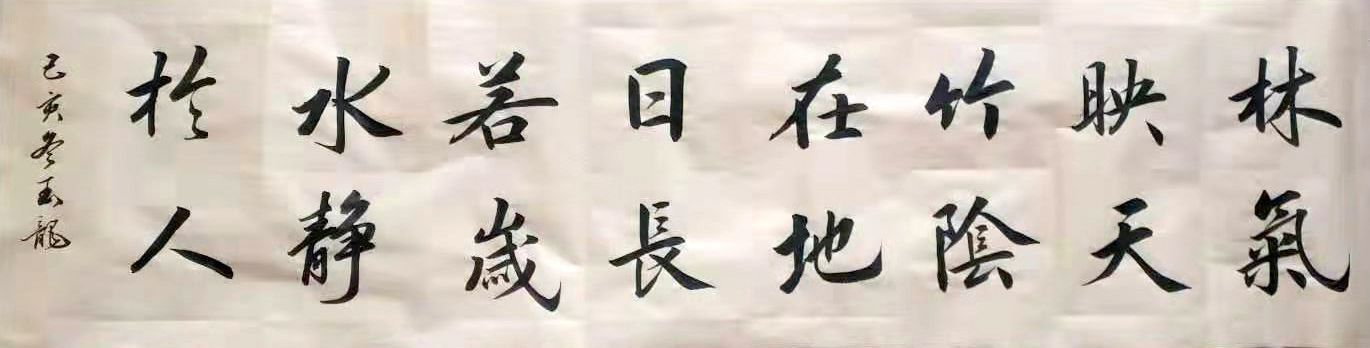 林氣
映天
竹陰
在地
日長
若歲
水静
於人
己亥冬玉龍